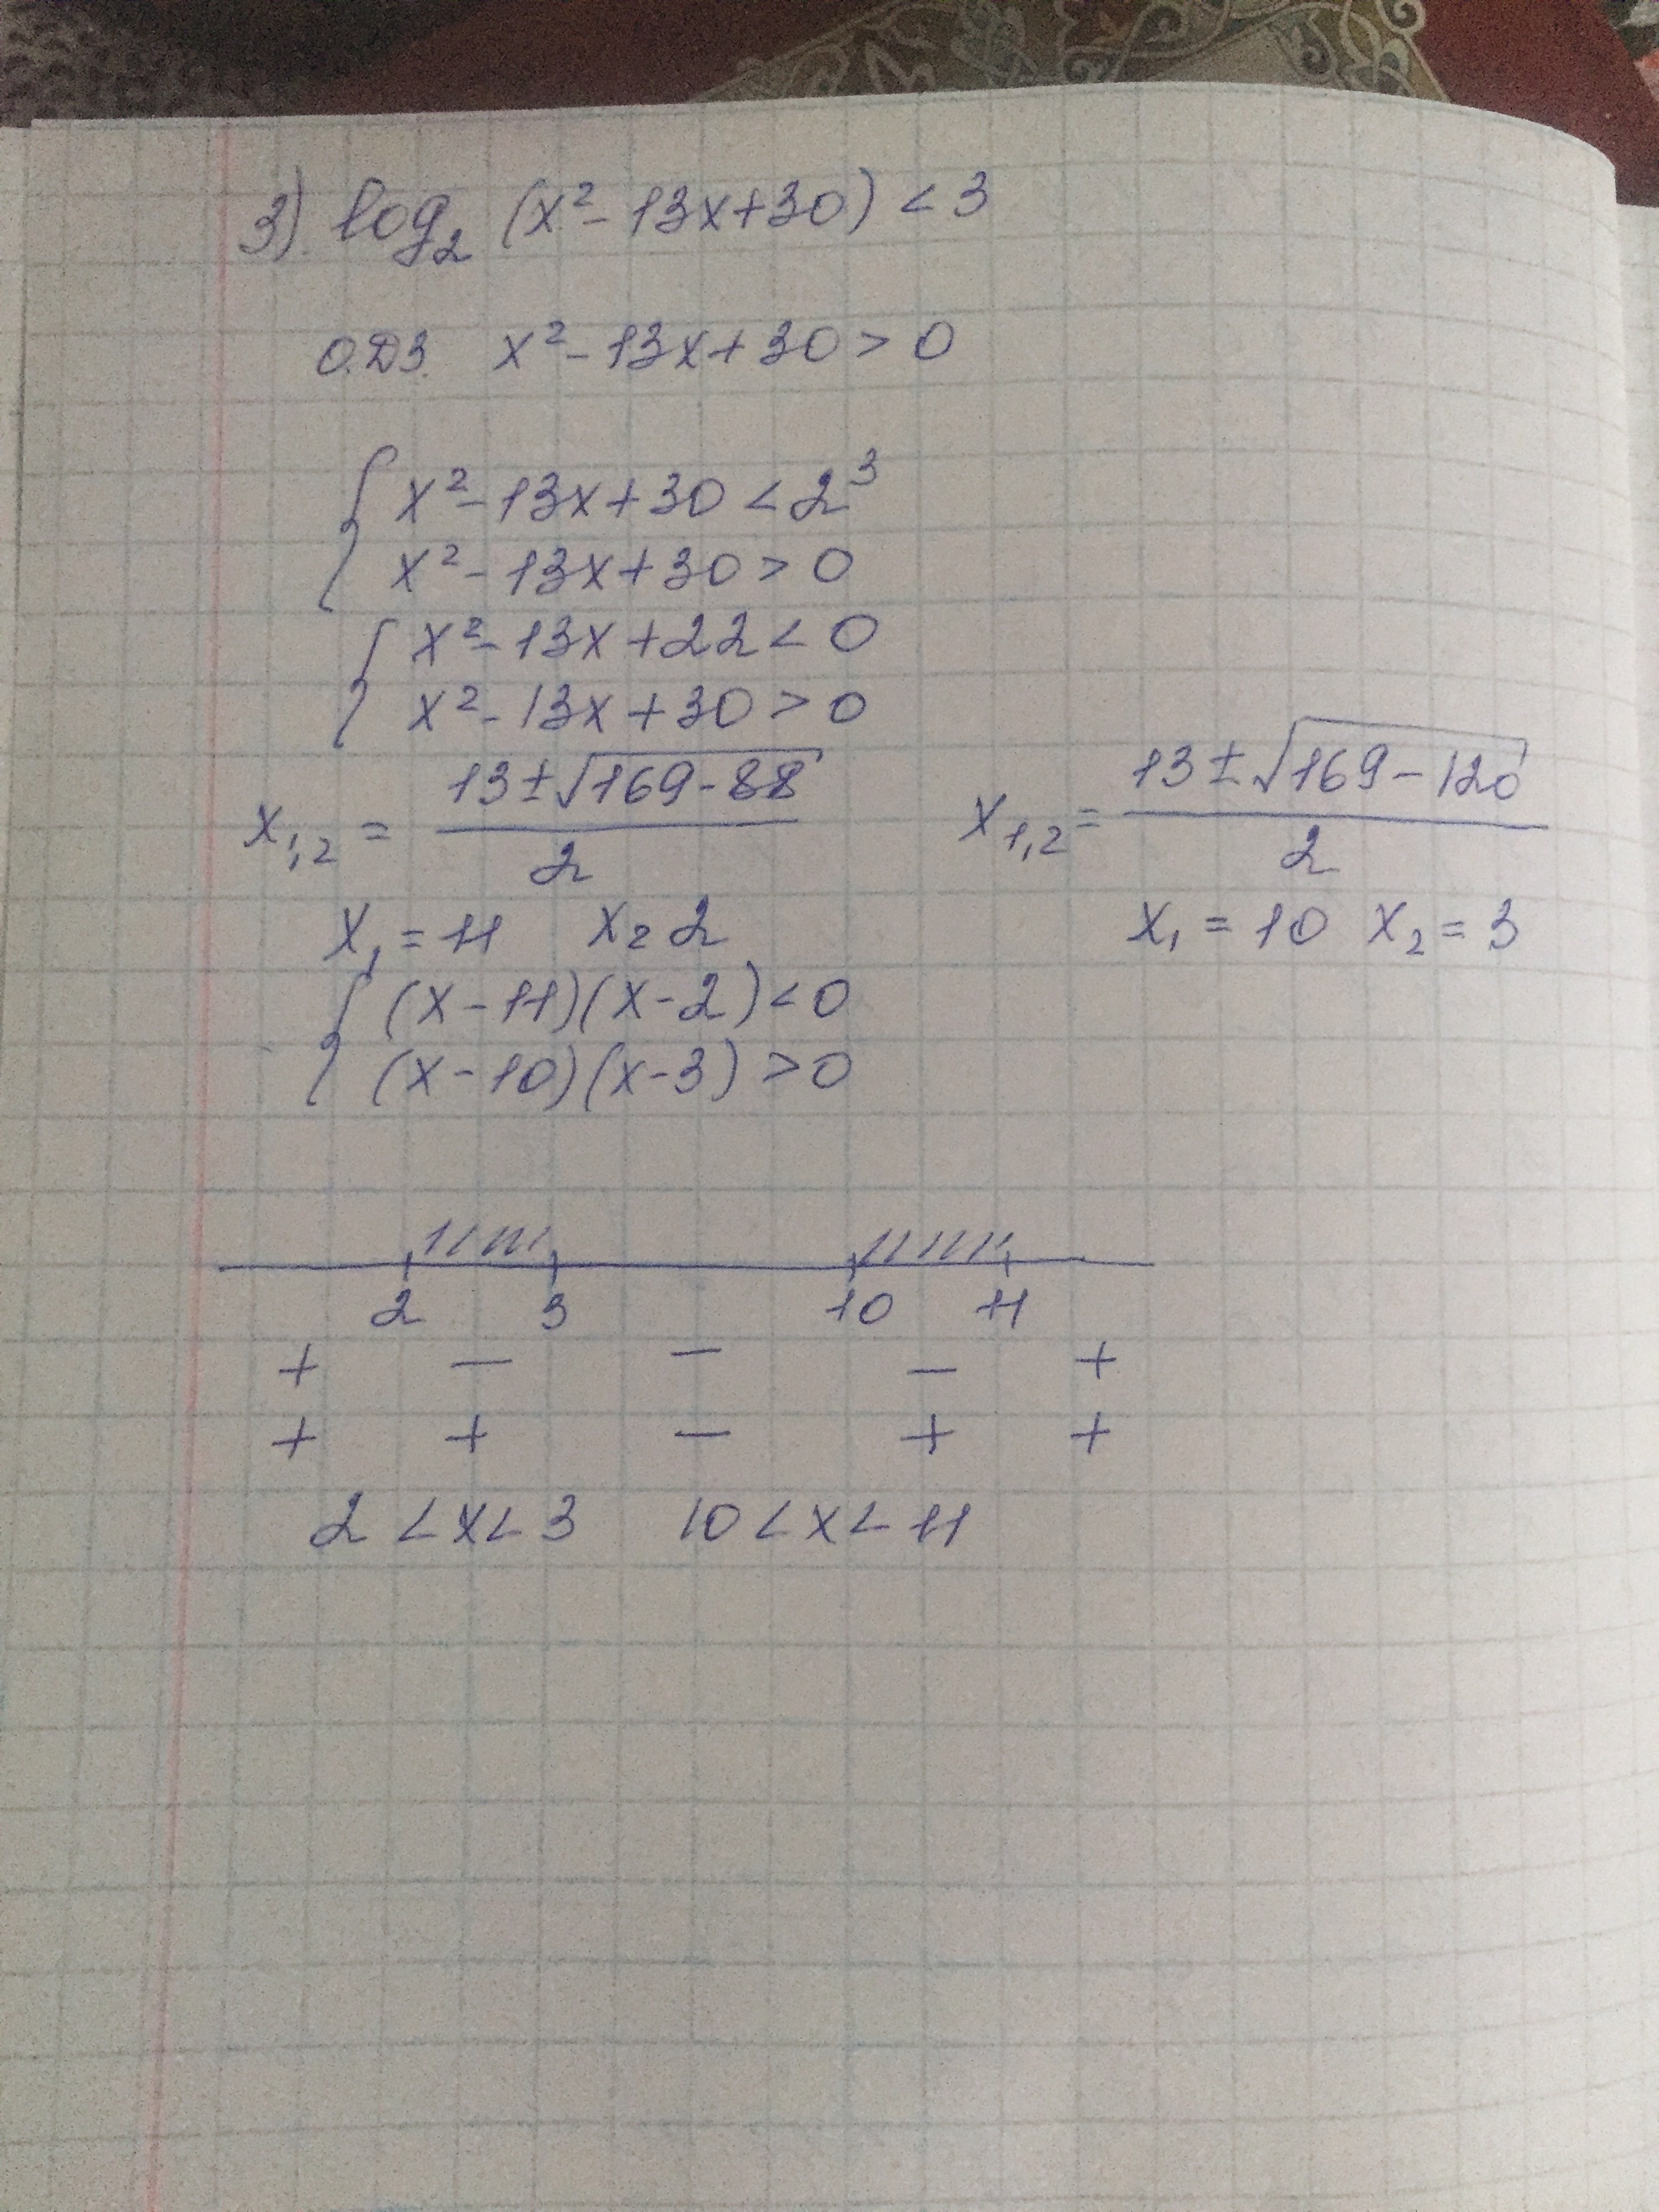 3). log₂ (x² - 13x + 30) < 3
О.ДЗ. x² - 13x + 30 > 0
{ x² - 13x + 30 < 2³
x² - 13x + 30 > 0
{ x² - 13x + 22 < 0
x² - 13x + 30 > 0
x₁,₂ = (13 ± √(169 - 88)) / 2    x₁,₂ = (13 ± √(169 - 120)) / 2
x₁ = 11  x₂ 2    x₁ = 10  x₂ = 3
{ (x - 11)(x - 2) < 0
(x - 10)(x - 3) > 0
2 3 10 11
+ − − − +
+ + − + +
2 < x < 3    10 < x < 11